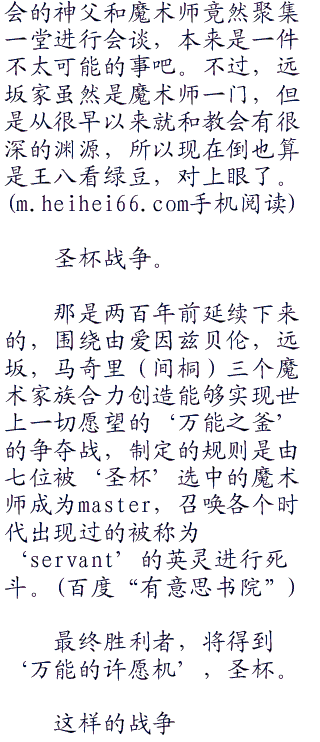 会的神父和魔术师竟然聚集
一堂进行会谈，本来是一件
不太可能的事吧。不过，远
坂家虽然是魔术师一门，但
是从很早以来就和教会有很
深的渊源，所以现在倒也算
是王八看绿豆，对上眼了。
(m.heihei66.com手机阅读)
圣杯战争。
那是两百年前延续下来
的，围绕由爱因兹贝伦，远
坂，马奇里（间桐）三个魔
术家族合力创造能够实现世
上一切愿望的‘万能之釜’
的争夺战，制定的规则是由
七位被‘圣杯’选中的魔术
师成为master，召唤各个时
代出现过的被称为
‘servant’的英灵进行死
斗。(百度“有意思书院”)
最终胜利者，将得到
‘万能的许愿机’，圣杯。
这样的战争